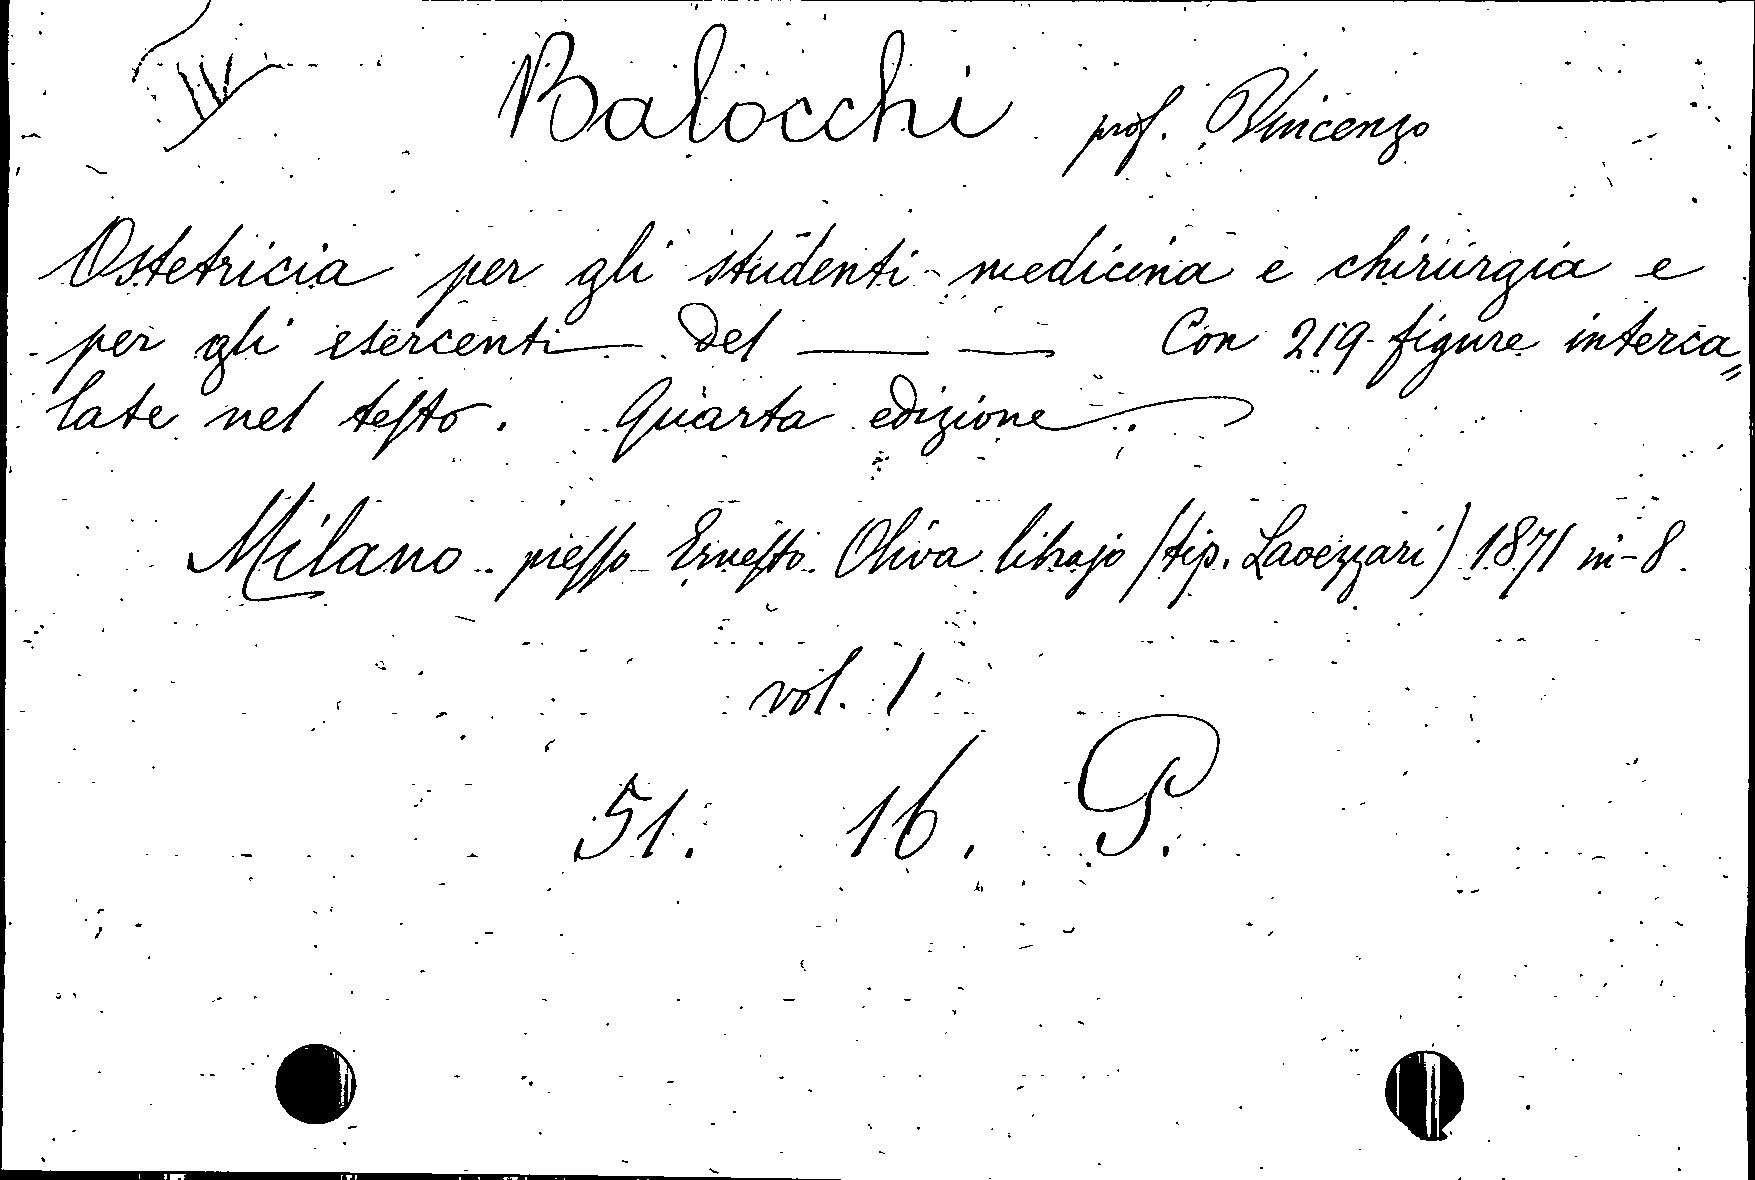 IV
Balocchi prof. Vincenzo
Ostetricia per gli studenti medicina e chirurgia e
per gli esercenti del — — Con 219 figure interca„
late nel testo. Quarta edizione.
Milano presso Ernesto Oliva librajo (tip. Lavezzari) 1871 in-8.
vol. 1
51. 16. P.